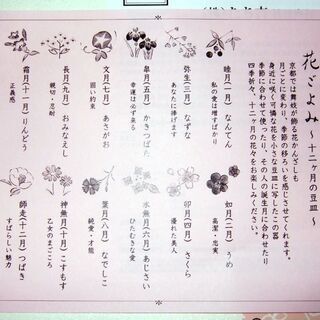 花ごよみ ~十二ヶ月の豆皿~
京都では舞妓が飾る花かんざしも
月ごとに変わり、季節の移ろいを感じさせてくれます。
身近に咲く可憐な花を小さな豆皿に写したこの器
季節に合わせて使ったり、その人の誕生月に合わせたり
四季折々、十二ヶ月の花々をお楽しみください。
睦月(一月)なんてん
私の愛は増すばかり
弥生(三月)なずな
あなたに捧げます
皐月(五月)かきつばた
幸運は必ず来る
文月(七月)あさがお
固い約束
長月(九月)おみなえし
親切・忍耐
霜月(十一月)りんどう
正義感
如月(二月)うめ
高潔・忠実
卯月(四月)さくら
優れた美人
水無月(六月)あじさい
ひたむきな愛
葉月(八月)なでしこ
純愛・才能
神無月(十月)こすもす
乙女のまごころ
師走(十二月)つばき
すばらしい魅力